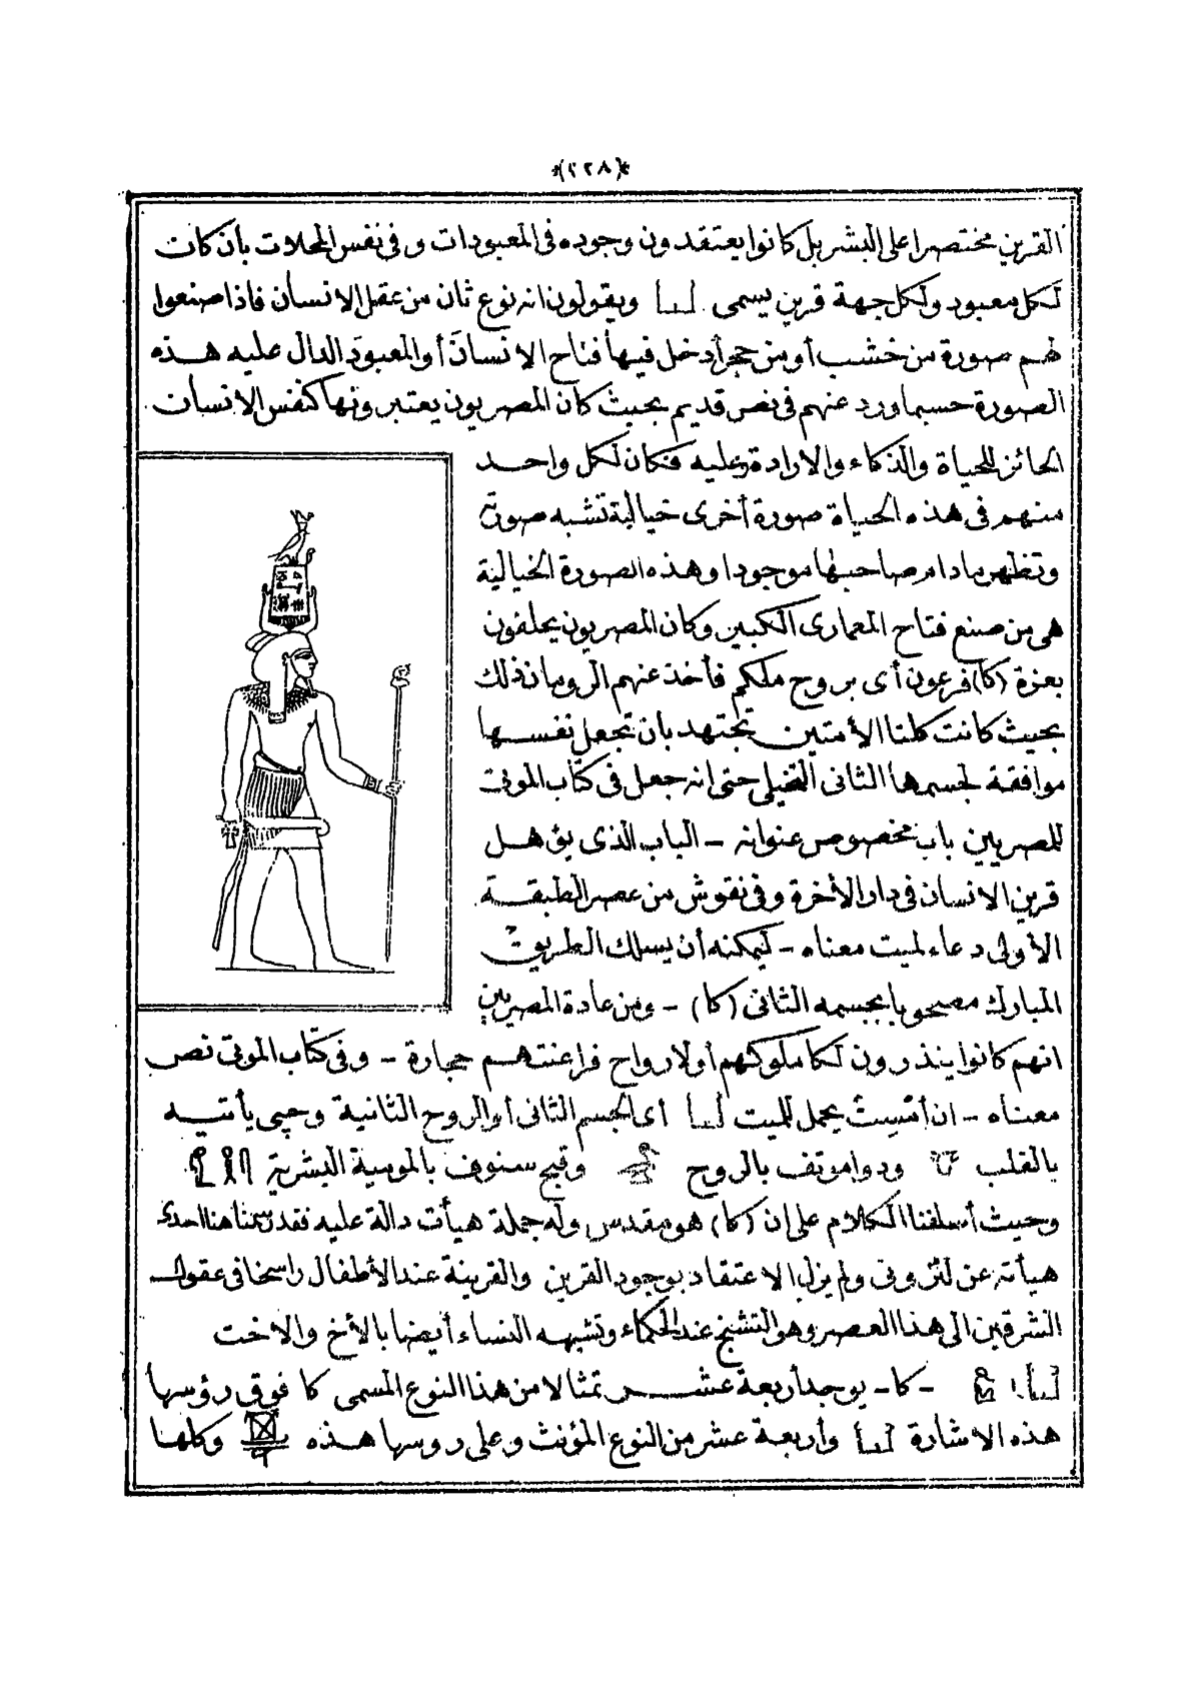 *(٢٢٨)*
القرين مختصرا على البشر بل كانوا يعتقدون وجوده فى المعبودات وفى نفس المحلات بأن كان
لكل معبود ولكل جهة قرين يسمى ويقولون انه نوع ثان من عقل الانسان فاذا صنعوا
لهم صورة من خشب أو من حجر أدخل فيها فتاح الانسانَ أو المعبودَ الدال عليه هذه
الصورة حسبما ورد عنهم فى نص قديم بحيث كان المصريون يعتبرونها كنفس الانسان
الحائز للحياة والذكاء والارادة وعليه فكان لكل واحد
منهم فى هذه الحياة صورة أخرى خيالية تشبه صورته
وتظهر مادام صاحبها موجودا وهذه الصورة الخيالية
هى من صنع فتاح المعمارى الكبير وكان المصريون يحلفون
بعزة (كا) فرعون أى بروح ملكهم فأخذ عنهم الرومان ذلك
بحيث كانت كلتا الأمتين تجتهد بان تجعل نفسها
موافقة لجسمها الثانى التخيلى حتى انه جعل فى كتاب الموتى
للمصريين باب مخصوص عنوانه - الباب الذى يؤهل
قرين الانسان فى دار الأخرة وفى نقوش من عصر الطبقة
الأولى دعاء لميت معناه - ليمكنه أن يسلك الطريق
المبارك مصحوبا بجسمه الثانى (كا) - ومن عادة المصريين
انهم كانوا ينذرون لكا ملوكهم أو لارواح فراعنتهم حجارة - وفى كتاب الموتى نص
معناه - ان أمْسِتْ يحمل للميت أى الجسم الثانى أو الروح الثانية وحپى يأتيه
بالقلب ودواموتف بالروح وقبح سنوف بالمومية البشرية
وحيث أسلفنا الكلام على ان (كا) هو مقدس وله جملة هيأت دالة عليه فقد رسمنا هنا احدى
هيأته عن لنزونى ولم يزل الاعتقاد بوجود القرين والقرينة عند الأطفال راسخا فى عقول
الشرقيين الى هذا العصر وهو التشنج عند الحكماء وتشبهه النساء أيضا بالأخ والاخت
- كا - يوجد أربعة عشر تمثالا من هذا النوع المسمى كا فوق رؤسها
هذه الاشارة وأربعة عشر من النوع المؤنث وعلى روسها هذه وكلها